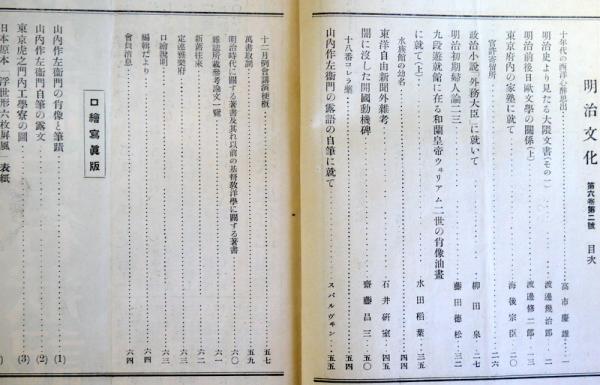 明治文化 第六巻第二號 目次
十年代の西洋心醉思出………高市慶雄…一
明治史より見たる大隈文書(その一)………渡邊幾治郎…二
明治前後日歐文學の關係(上)………渡邊修二郎…一三
東京府内の家塾に就て………海後宗臣…二〇
官許寄留所………二六
政治小説「外務大臣」に就いて………柳田泉…二七
明治初期婦人論二三………藤田徳松…三二
九段遊就館に在る和蘭皇帝ウヰリアム二世の肖像油畫
に就て(上)………水田稻葉…三五
水族館の幼名………四四
東洋自由新聞外雜考………石井研堂…四五
闇に沒した開國動機碑………齋藤昌三…五〇
十八番コレラ藥………五四
山内作左衞門の露語の自筆に就て………スパルヴヰン…五五
十二月例會講演梗概………五七
萬書取調………五九
明治時代に關する著書及其れ以前の基督教洋學に關する著書………六〇
雜誌所載參考論文一覽………六一
新舊往來………六二
定連雅樂府………六三
口繪說明………六三
編輯だより………六四
會員消息………六四
口繪寫眞版
山内作左衞門の肖像と筆蹟………(1)
山内作左衞門自筆の露文………(2)
東京虎之門内工學寮の圖………(3)
日本原本「浮世形六枚屏風」表紙